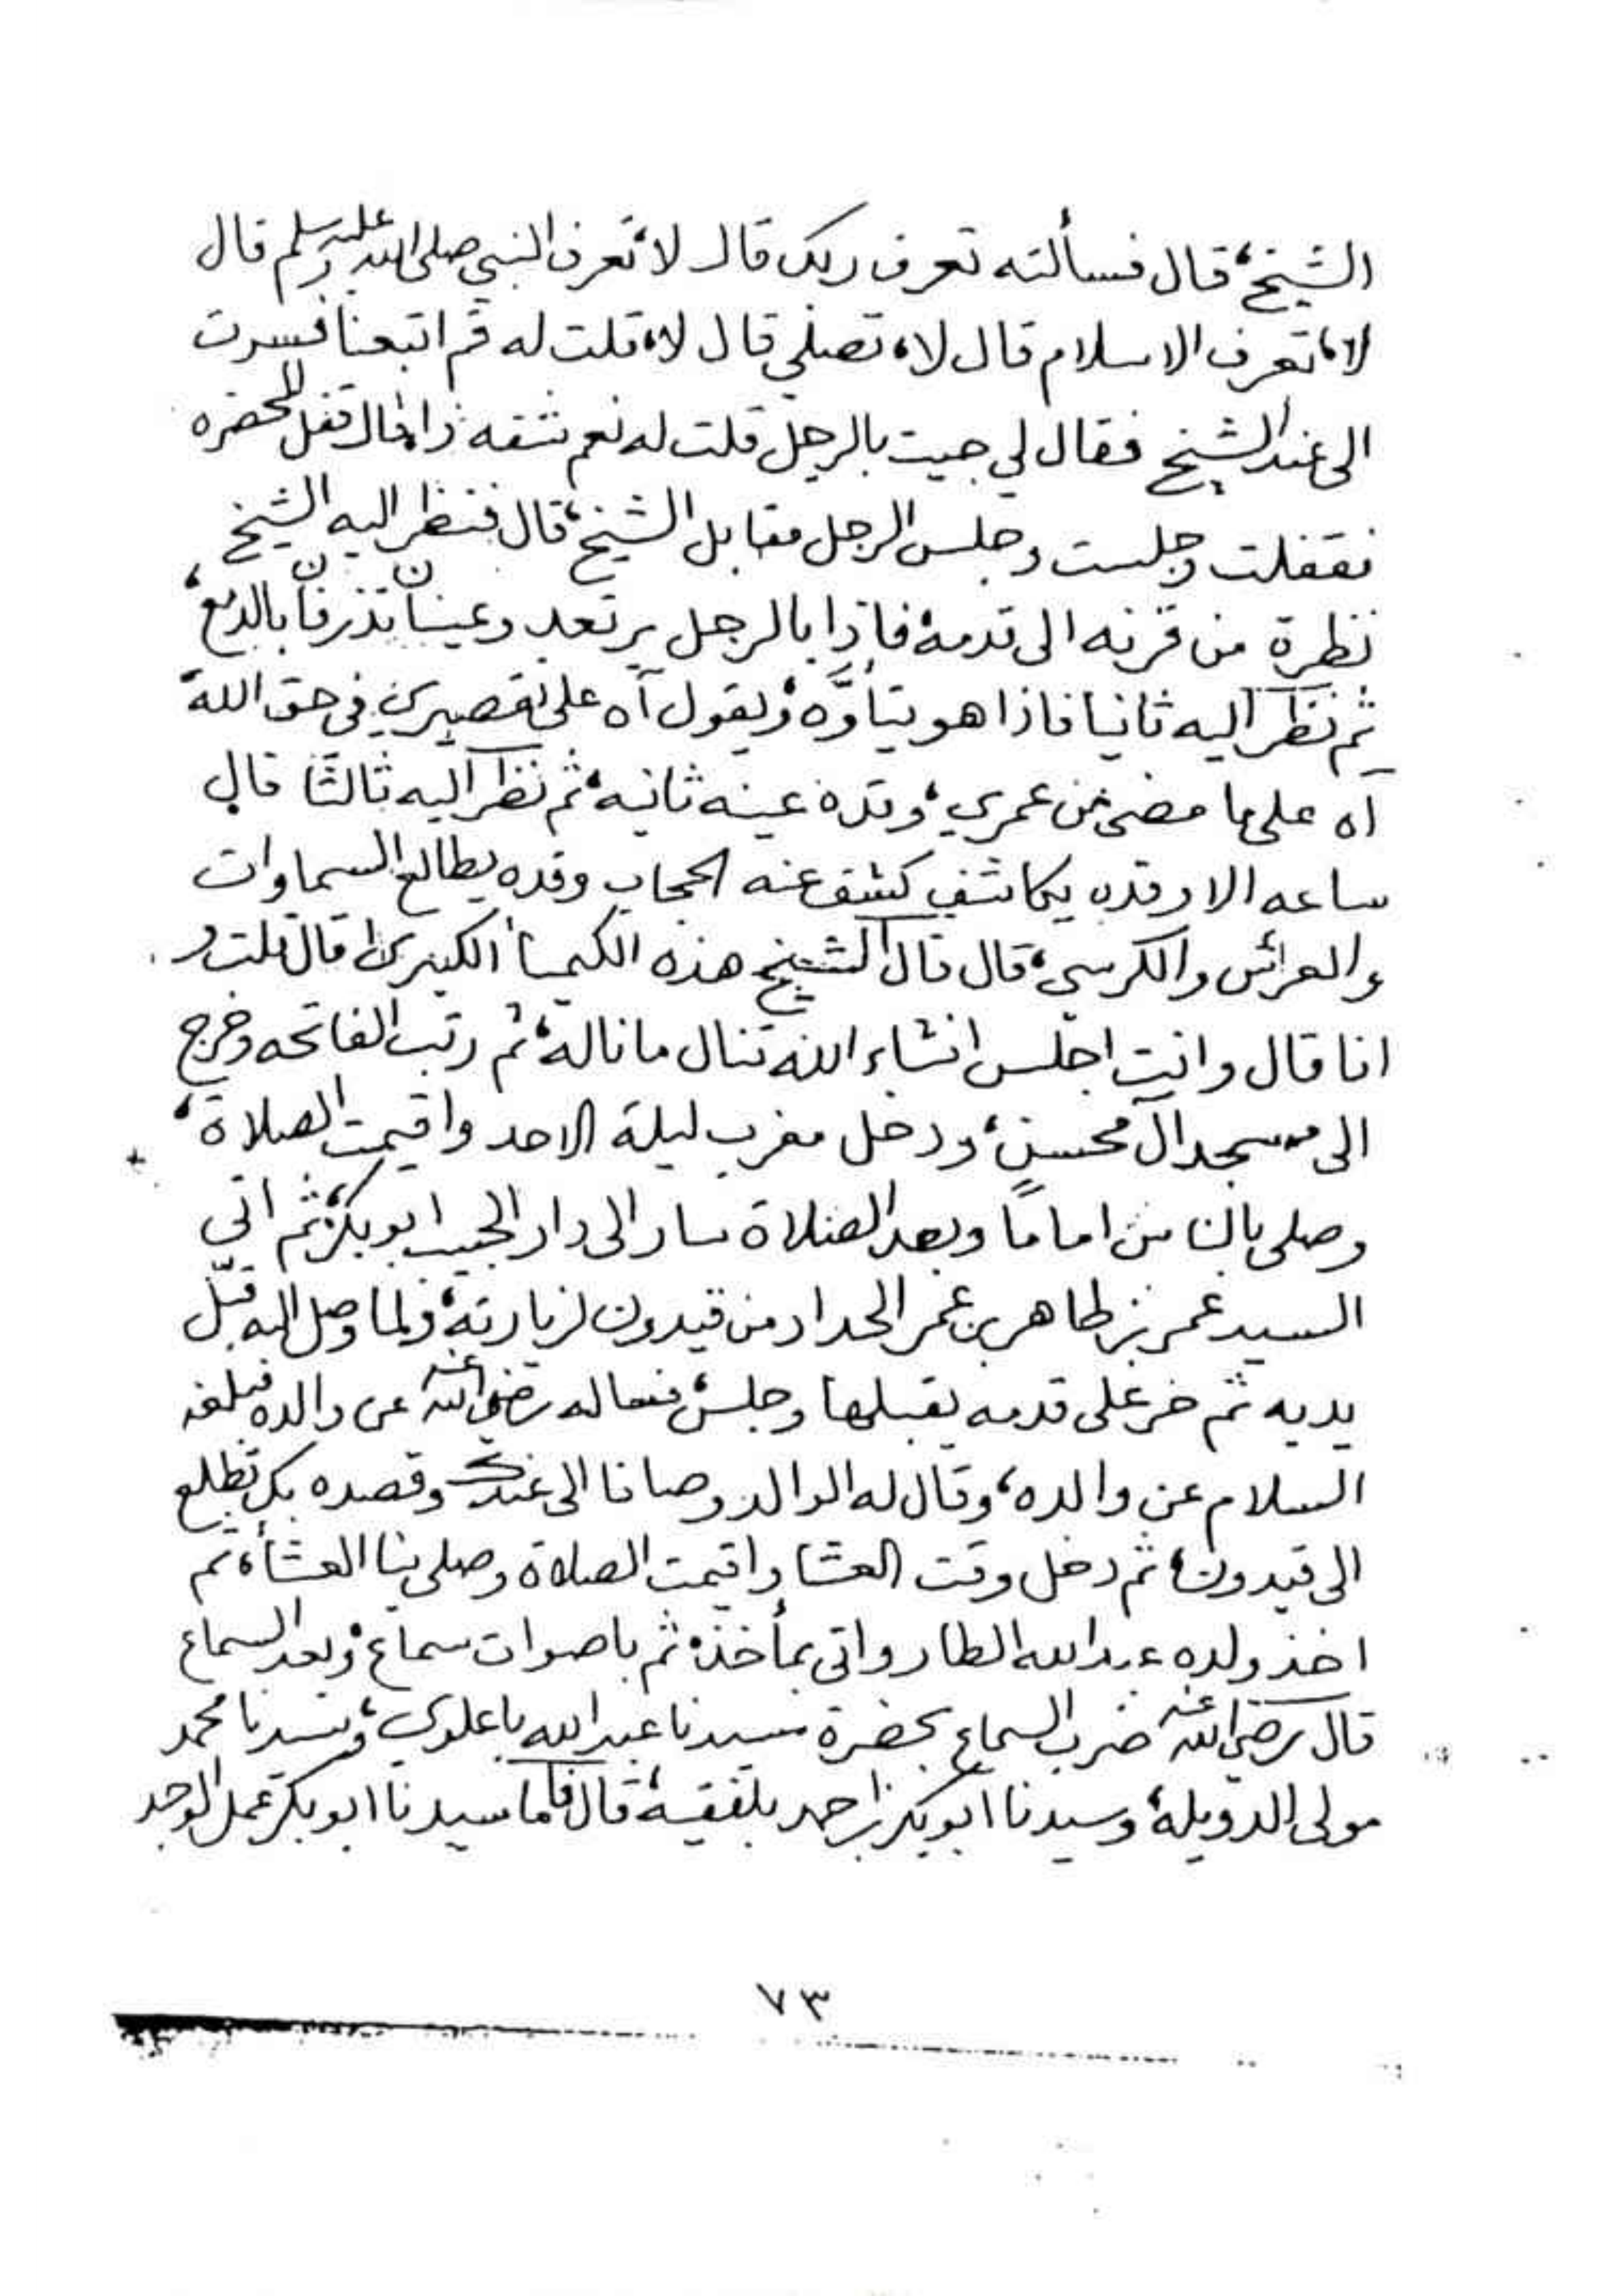 الشيخ، قال فسألته تعرف ربك قال لا، تعرف النبي صلى الله عليه وسلم قال
لا، تعرف الاسلام قال لا، تصلي قال لا، قلت له قم اتبعنا فسرت
الى عند الشيخ فقال لي جيت بالرجل قلت له نعم شفه ذا قال قفل المحضره
فقفلت وجلست وجلس الرجل مقابل الشيخ، قال فنظر اليه الشيخ
نظرة من قرنه الى قدمه، فاذا بالرجل يرتعد وعيناه تذرفان بالدمع،
ثم نظر اليه ثانيا فاذا هو يتأوَّه، ويقول آه على تقصيري في حق الله،
آه على ما مضى من عمري، وقده عينه ثانيه، ثم نظر اليه ثالثًا قال
ساعه الا وقده يكاشف كشف عنه الحجاب وقده يطالع السماوات
والعرش والكرسي، قال قال الشيخ هذه الكيميأ الكبرى، قال قلت و
انا قال وانت اجلس انشاء الله تنال ما ناله، ثم رتب الفاتحه وخرج
الى مسجد آل محسن، ودخل مغرب ليلة الاحد واقيمت الصلاة،
وصلى بالناس امامًا وبعد الصلاة سار الى دار الحبيب ابوبكر، ثم اتى
السيد عمر بن طاهر بن عمر الحداد من قيدون لزيارته، ولما وصل اليه قبّل
يديه ثم خر على قدمه يقبلها وجلس، فساله رضي الله عنه عن والده فبلغه
السلام عن والده، وقال له الوالد وصانا الى عندك وقصده بك تطلع
الى قيدون، ثم دخل وقت العشا واقيمت الصلاة وصلى بنا العشأ، ثم
اخذ ولده عبدالله الطار واتى بمأخذ، ثم باصوات سماع، وبعد السماع
قال رضي الله عنه ضرب السماع بحضرة سيدنا عبدالله باعلوي، وسيدنا محمد
مولى الدويلة، وسيدنا ابوبكر بن احمد بلفقيه، قال فاما سيدنا ابوبكر عمل الوجد
٧٣